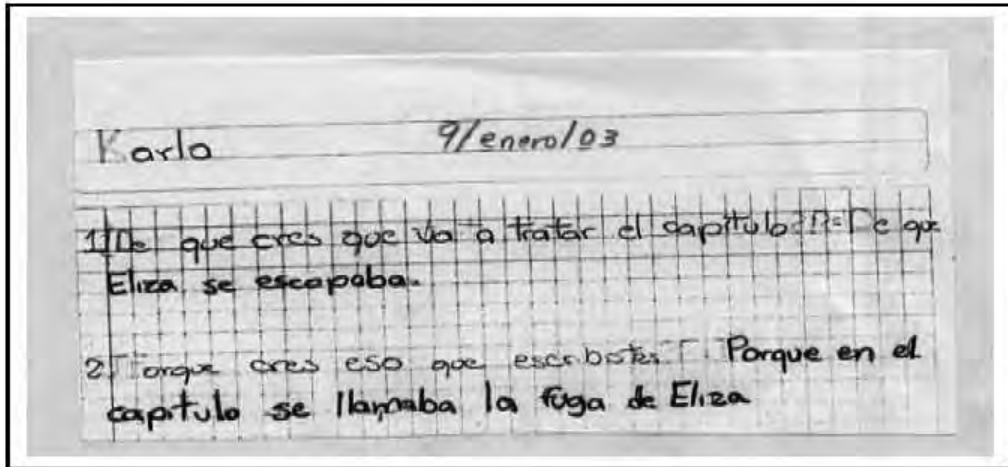 Karla 9/enero/03
1 De que cres que va a tratar el capítulo? R= De que
Eliza se escapaba.
2 Porque cres eso que escribistes? Porque en el
capitulo se llamaba la fuga de Eliza